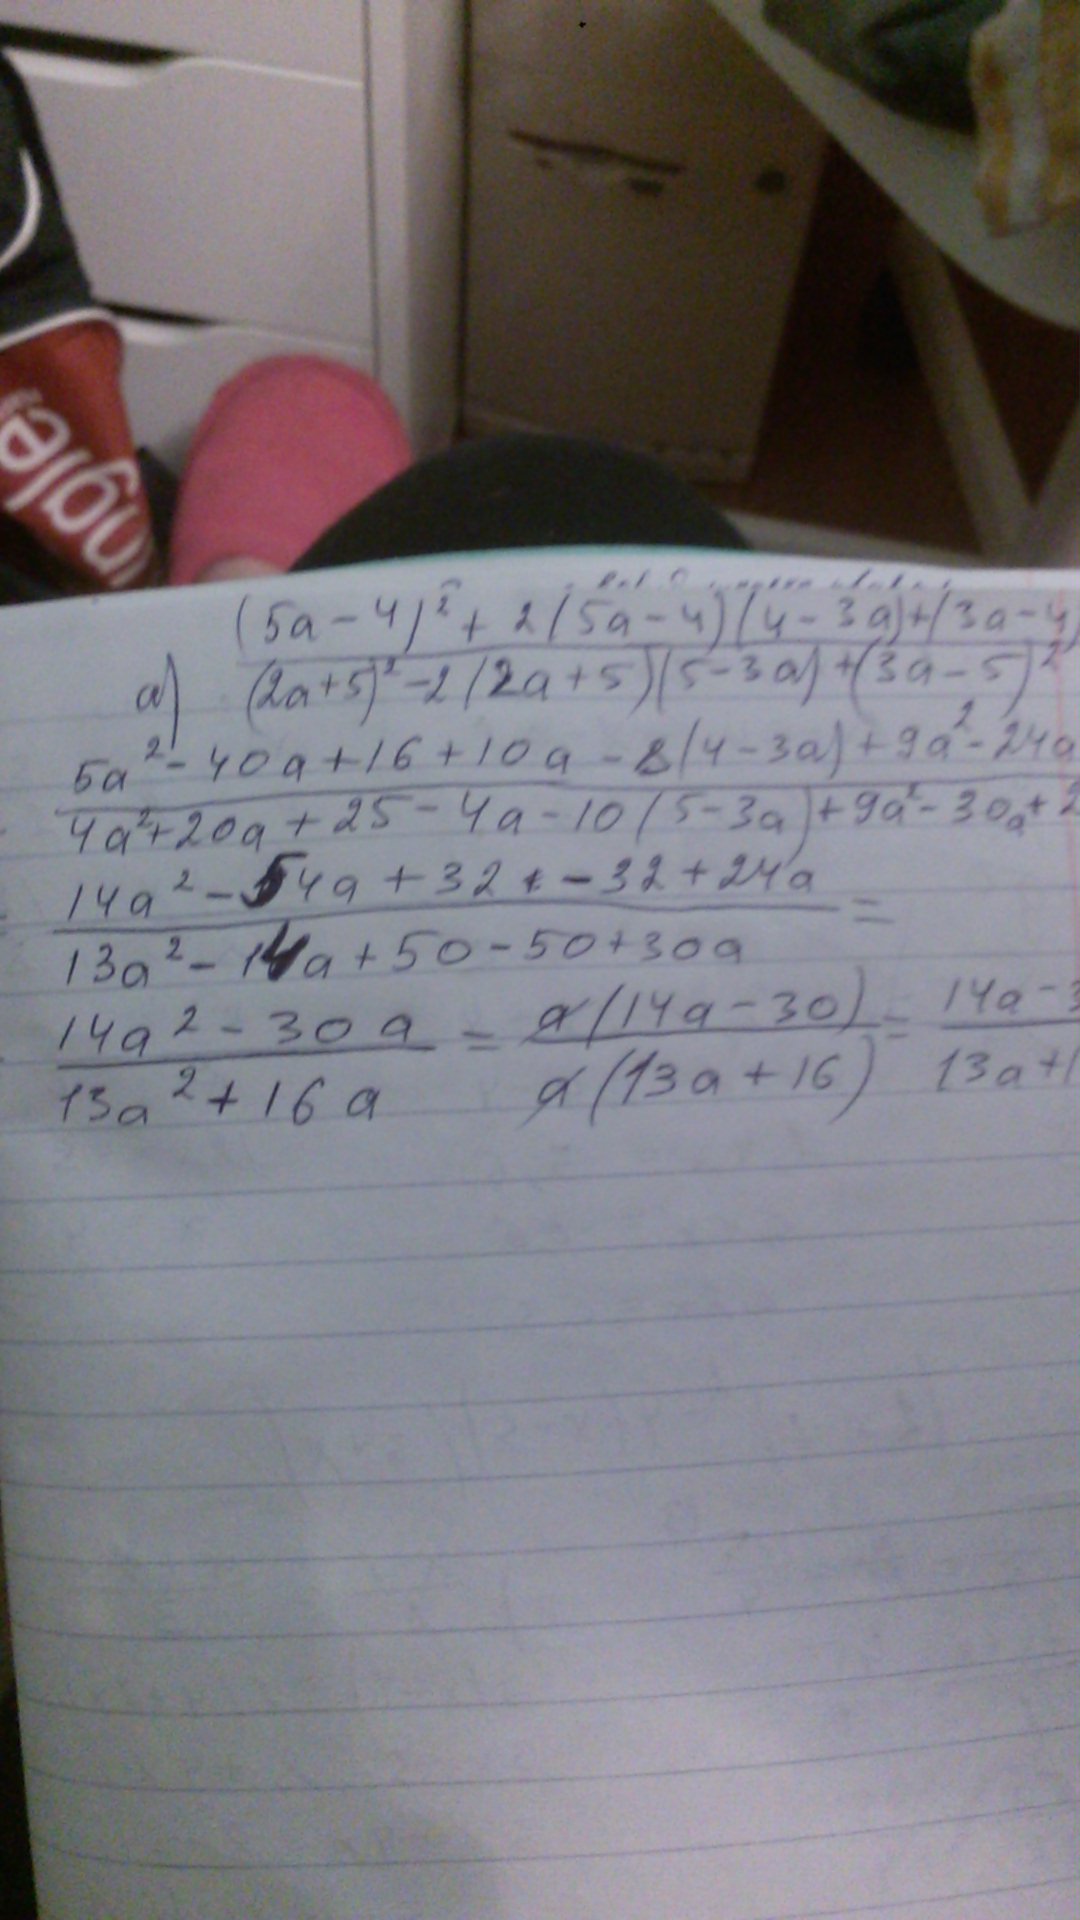 (5a-4)²+2(5a-4)(4-3a)+(3a-4)
a) (2a+5)²-2(2a+5)(5-3a)+(3a-5)²
5a²-40a+16+10a-8(4-3a)+9a²-24a
4a²+20a+25-4a-10(5-3a)+9a²-30a+2
14a²-54a+32-32+24a =
13a²-14a+50-50+30a
14a²-30a = a(14a-30) = 14a-3
13a²+16a a(13a+16) 13a+1
ngle